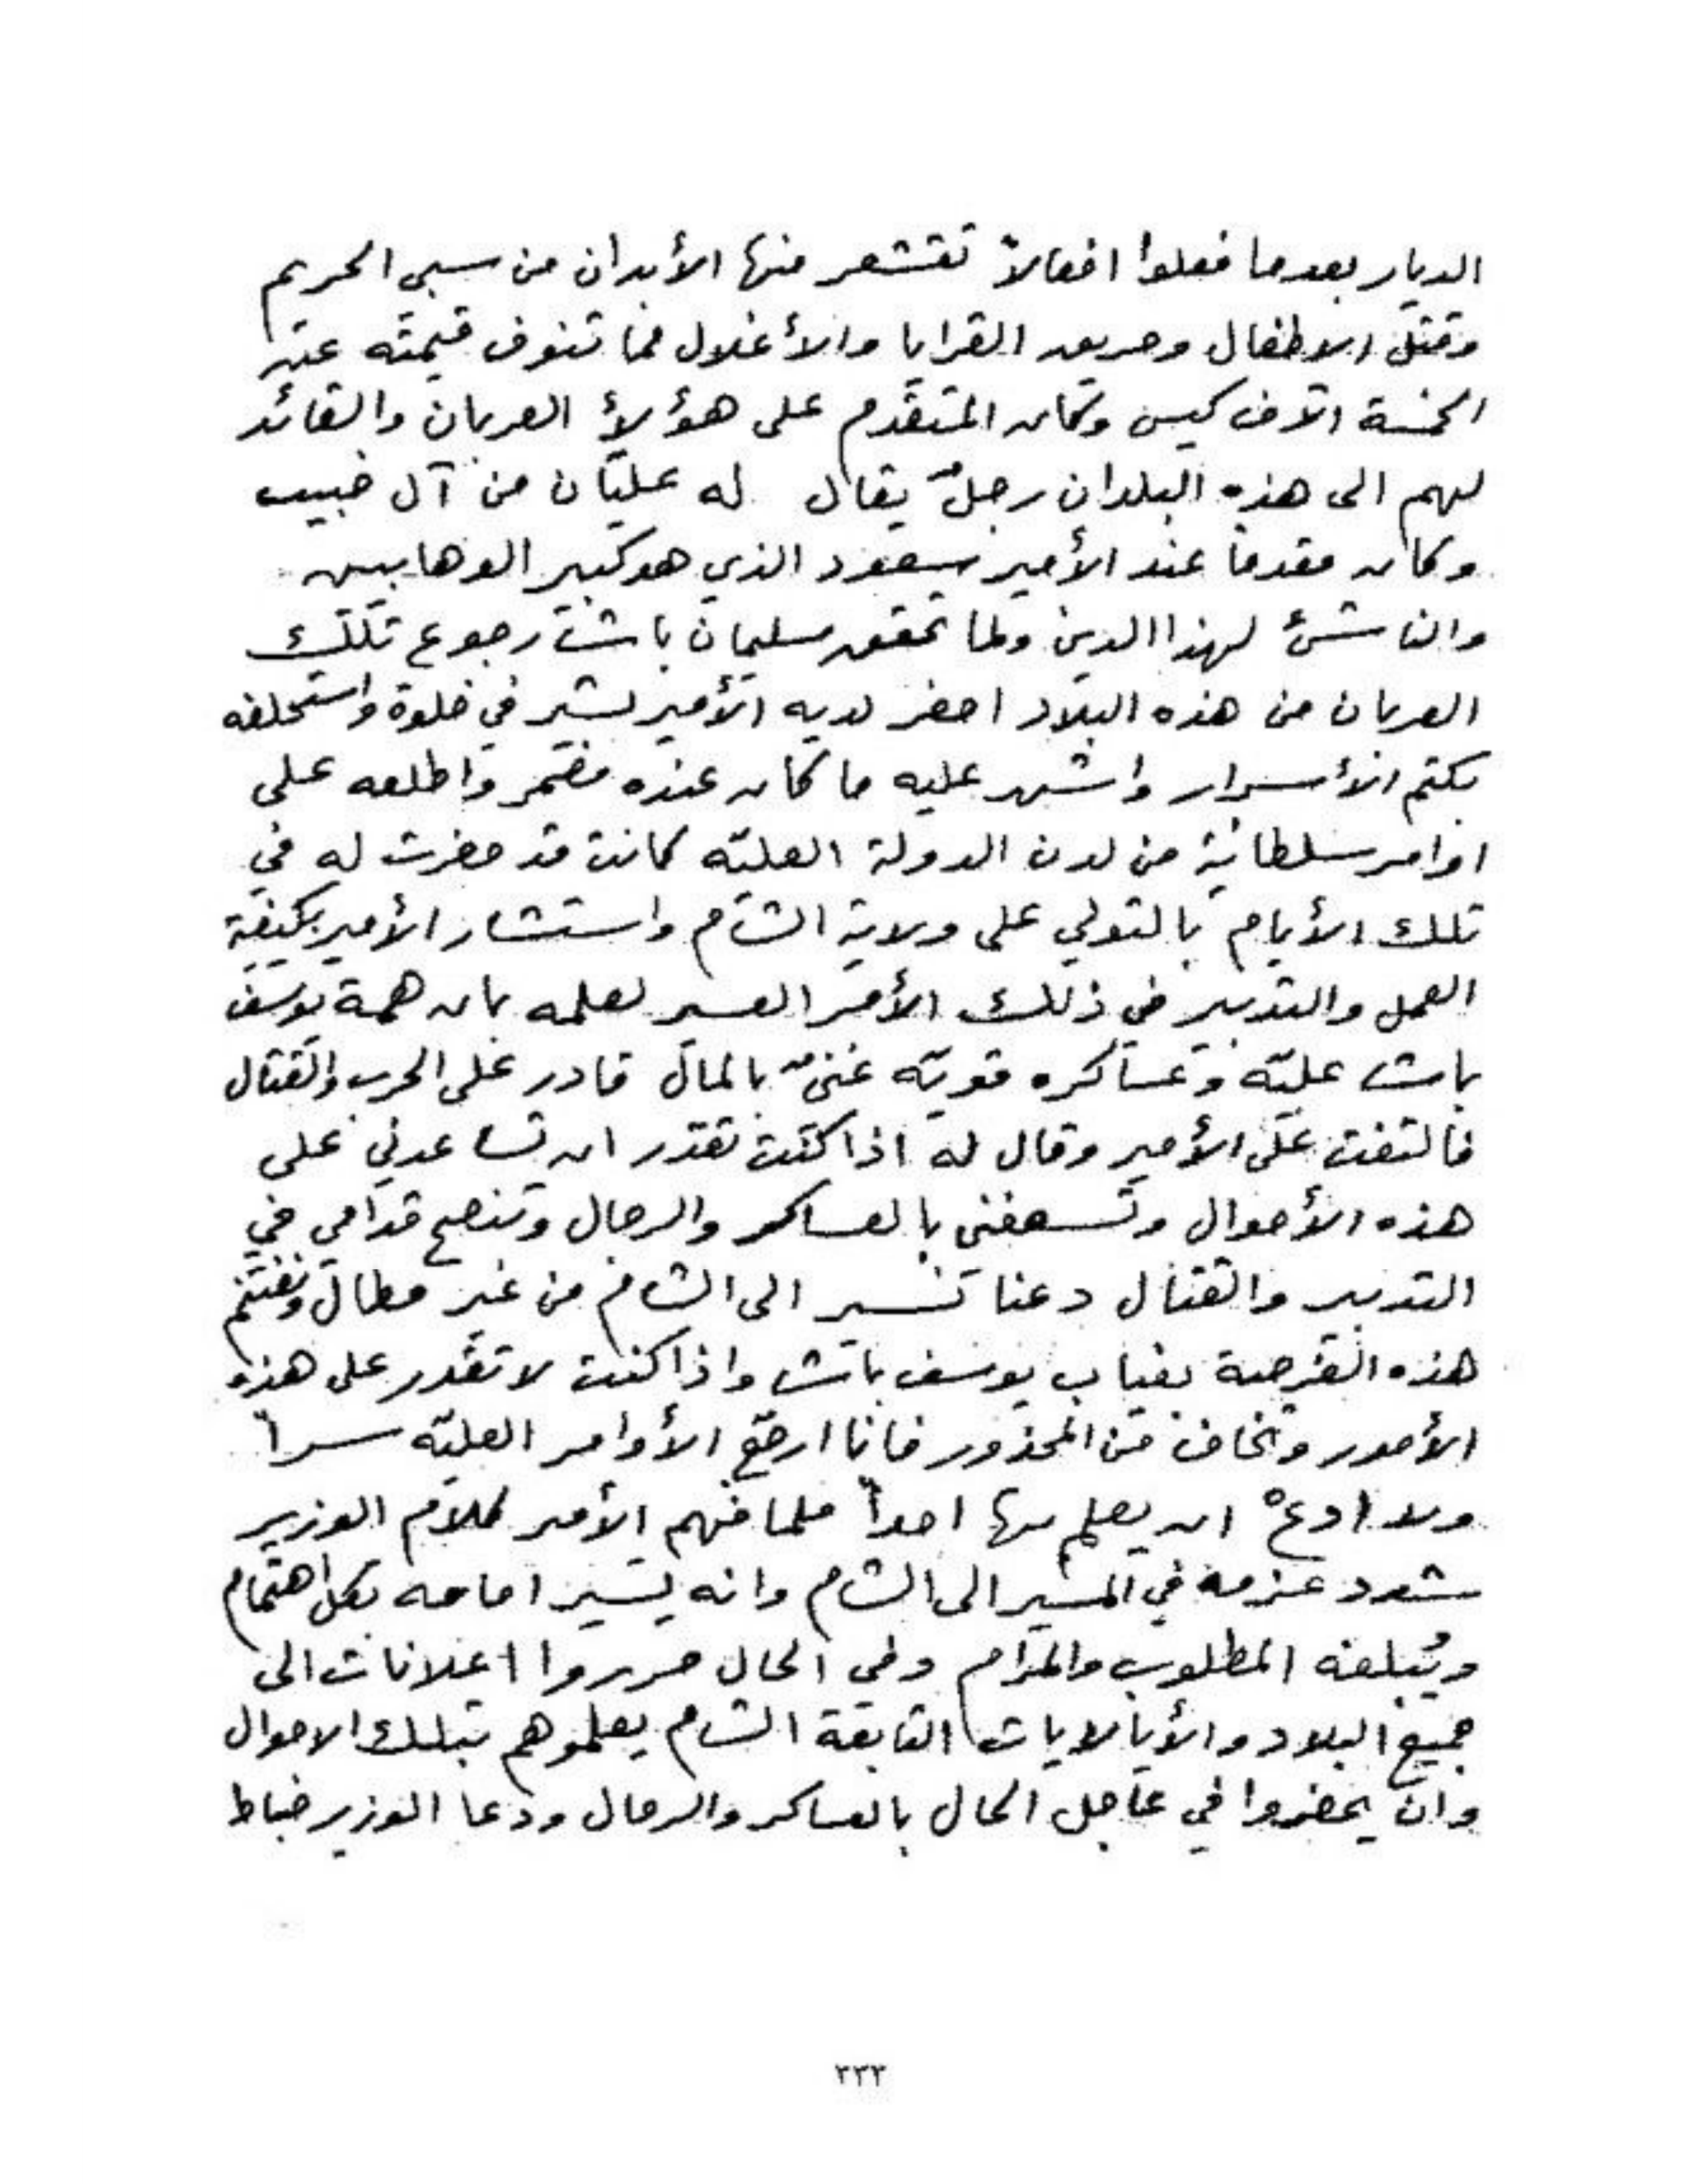 الديار بعدما فعلوا افعالاً تقشعر منها الأبدان من سبي الحريم
وقتل الاطفال وحريق القرايا والأغلال مما تنوف قيمته عن
الخمسة الآف كيس وكان المتقدم على هؤلاء العربان والقائد
لهم الى هذه البلدان رجلٌ يقال له عليّان من آل ضبيب
وكان مقدماً عند الأمير سعود الذي هو كبير الوهابيين
والناشئ لهذا الدين ولما تحقق سليمان باشا رجوع تلك
العربان من هذه البلاد احضر لديه الأمير بشير في خلوة واستحلفه
بكتم الأسرار واشهر عليه ما كان عنده مضمر واطلعه على
اوامر سلطانية من لدن الدولة العليّه كانت قد حضرت له في
تلك الأيام بالتولي على ولاية الشام واستشار الأمير بكيفية
العمل والتدبير في ذلك الأمر العسير لعلمه بان همة يوسف
باشا عليّه وعساكره قويّه غنيٌ بالمال قادر على الحرب والقتال
فالتفت على الأمير وقال له اذا كنت تقدر ان تساعدني على
هذه الأحوال وتسعفني بالعساكر والرجال وتنصح قدامي في
التدبير والقتال دعنا نسير الى الشام من غير مطال ونغتنم
هذه الفرصة بغياب يوسف باشا واذا كنت لا تقدر على هذه
الأمور وتخاف من المحذور فانا ارجّع الأوامر العليّه سراً
ولا ادعْ ان يعلم بها احداً فلما فهم الأمير كلام الوزير
شدد عزمه في المسير الى الشام وانه يسير امامه بكل اهتمام
ويُبلغه المطلوب والمرام وفي الحال حرروا اعلانات الى
جميع البلاد والأيالايات التابعة الشام يعلموهم بتلك الاحوال
وان يحضروا في عاجل الحال بالعساكر والرجال ودعا الوزير ضباط
٣٣٢